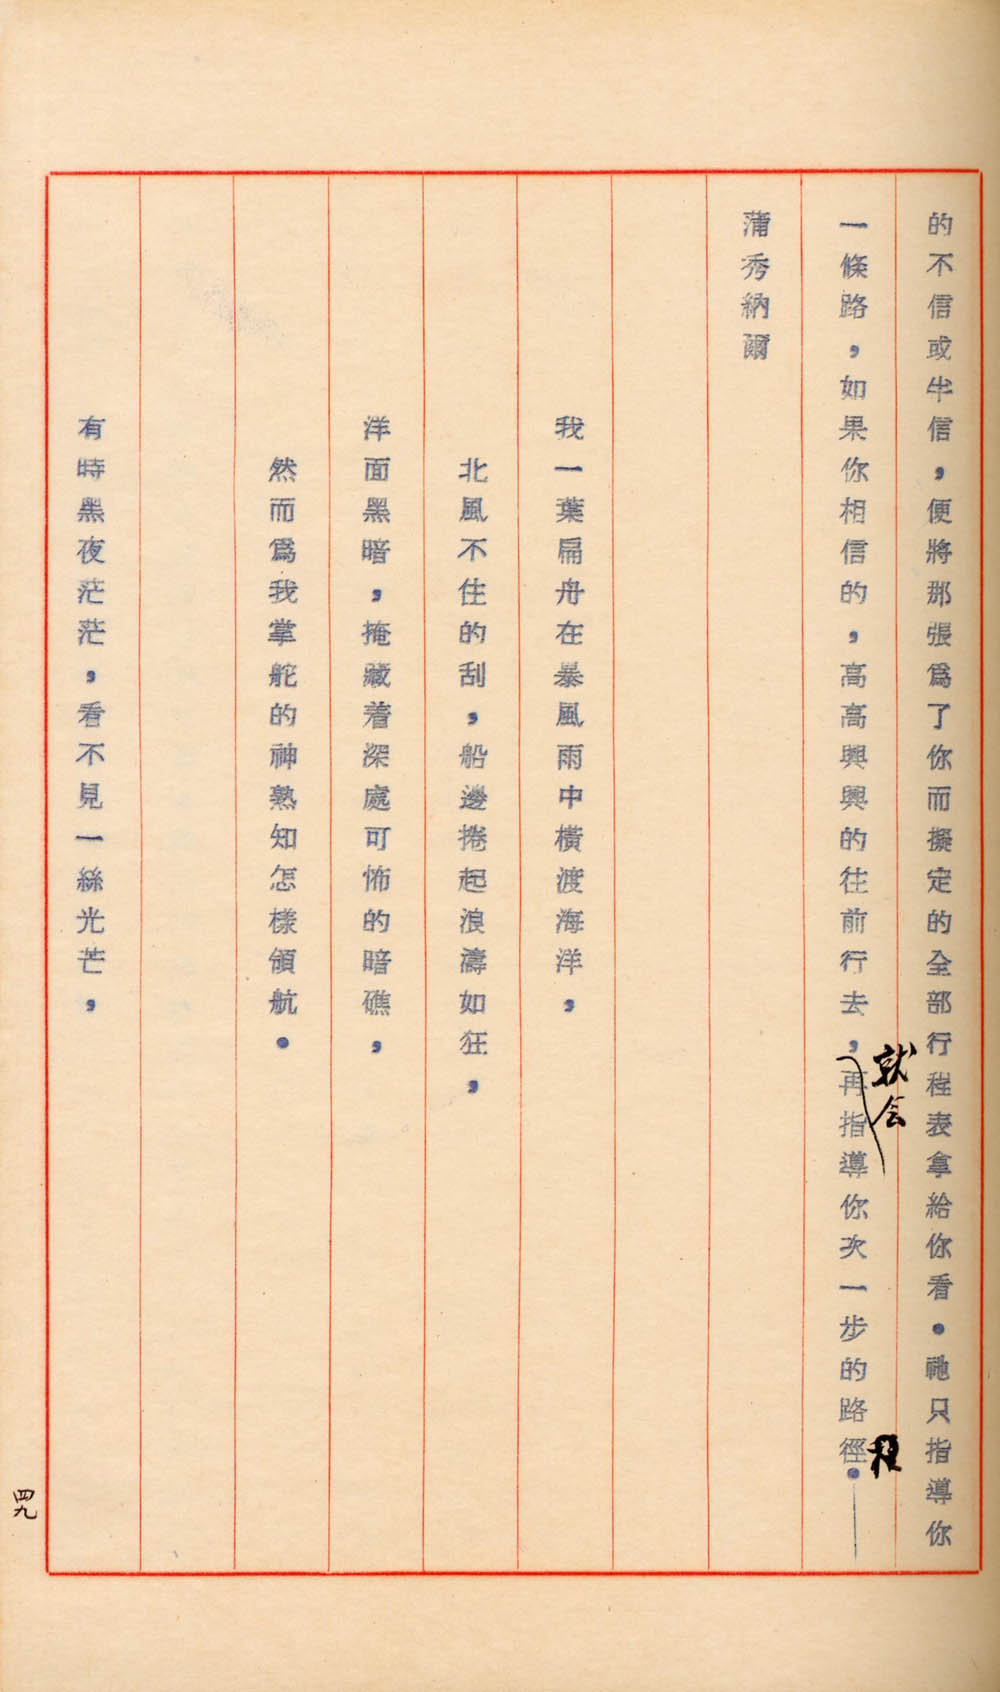 的不信或半信，便將那張爲了你而擬定的全部行程表拿給你看。祂只指導你
一條路，如果你相信的，高高興興的往前行去，再指導你次一步的路徑。—
就会
程
蒲秀納爾
我一葉扁舟在暴風雨中橫渡海洋，
北風不住的刮，船邊捲起浪濤如狂，
洋面黑暗，掩藏着深處可怖的暗礁，
然而爲我掌舵的神熟知怎樣領航。
有時黑夜茫茫，看不見一絲光芒，
四九